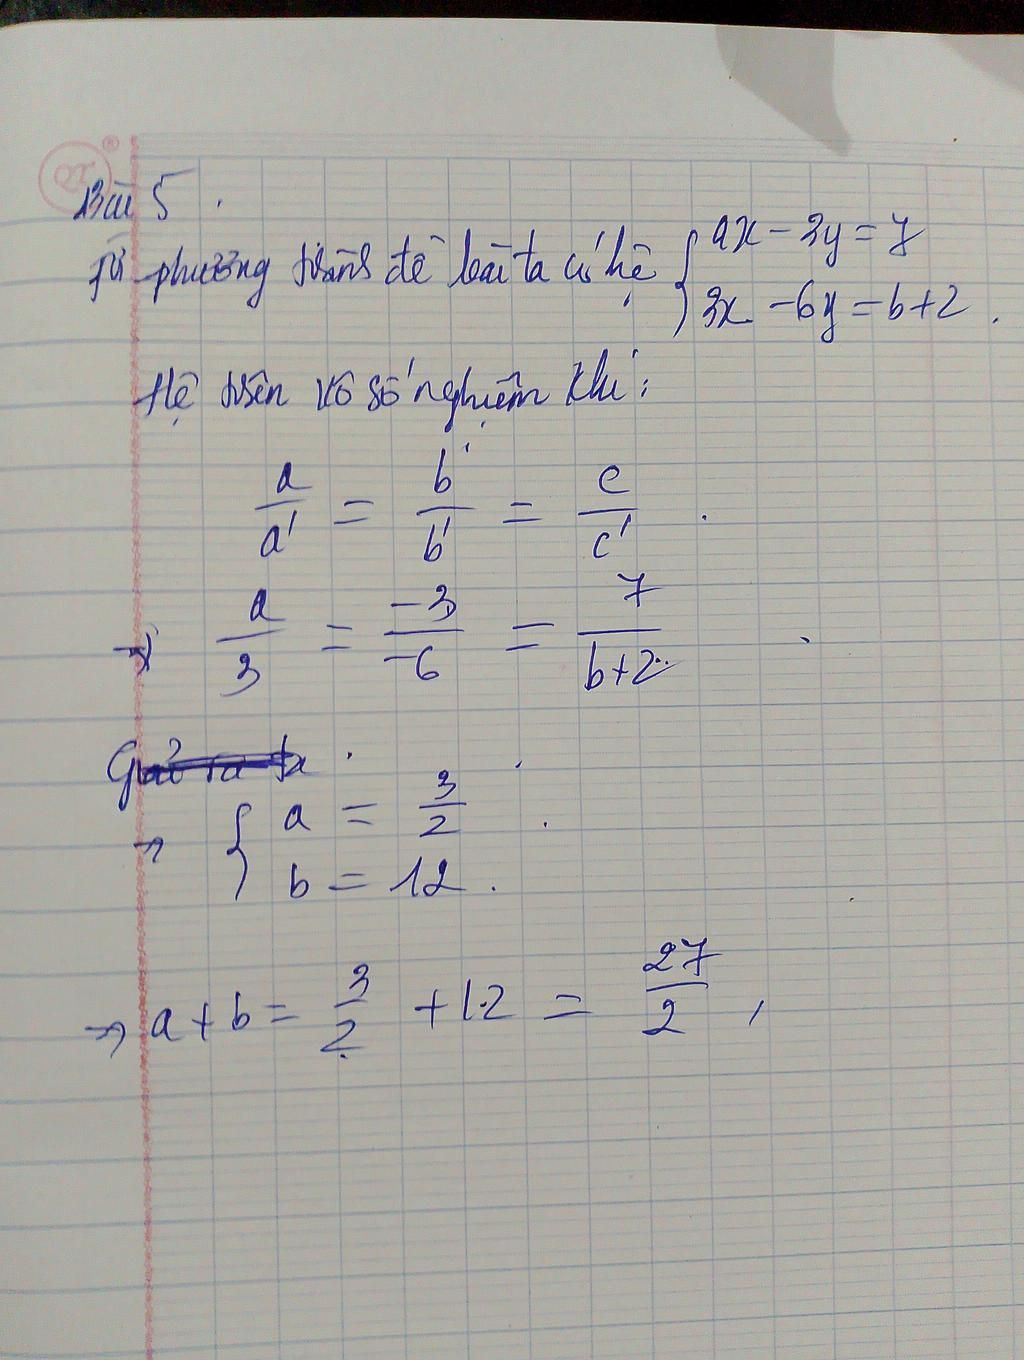 Bài 5.
Từ phương trình đề bài ta có hệ { ax - 3y = 7
3x - 6y = b+2.
Hệ trên vô số nghiệm khi:
a/a' = b/b' = c/c'.
→ a/3 = -3/-6 = 7/b+2.
→ { a = 3/2.
b = 12.
→ a + b = 3/2 + 12 = 27/2,